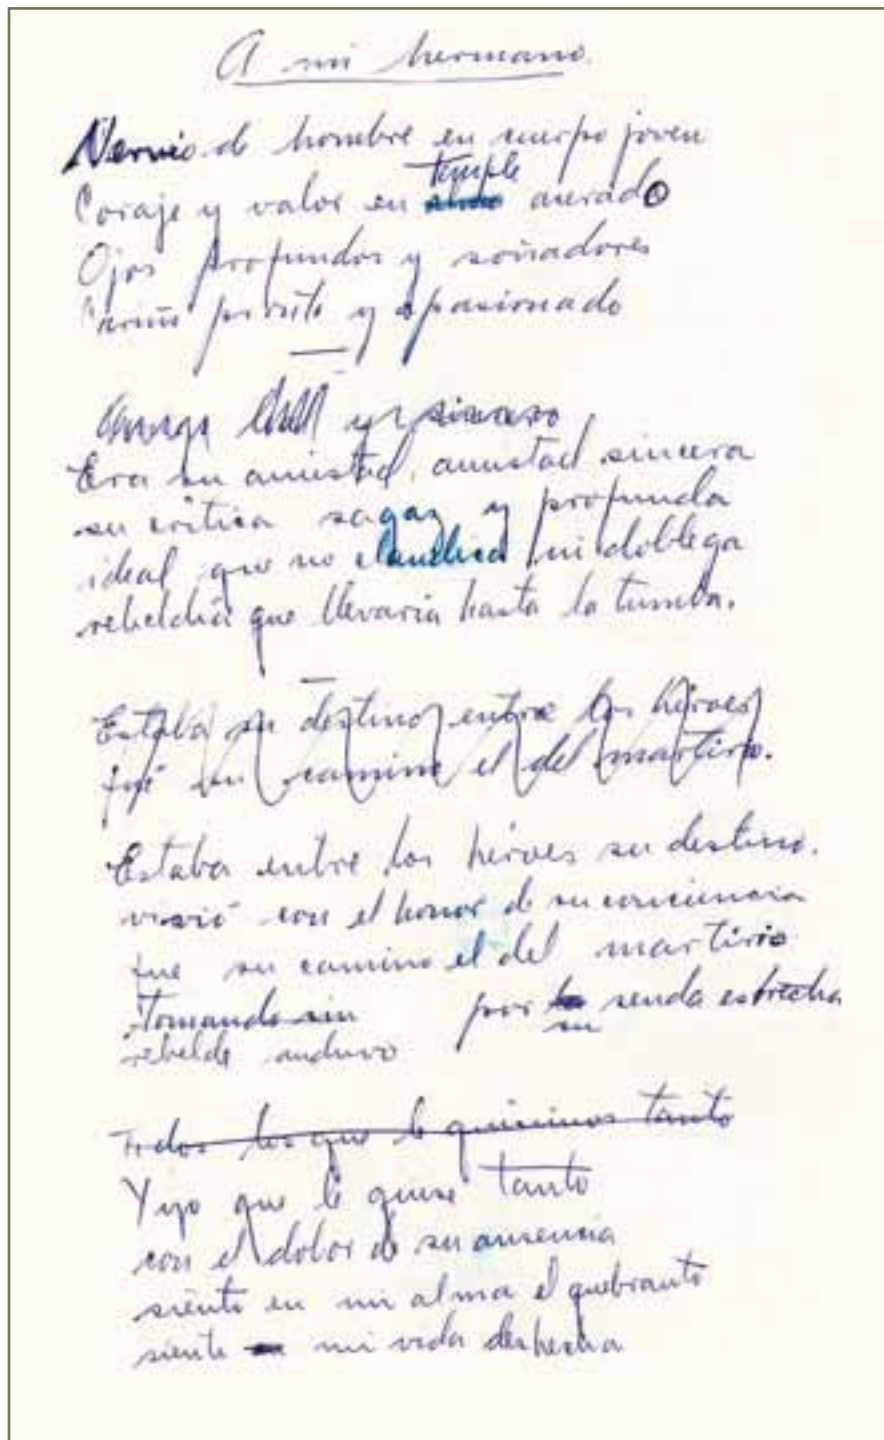 A mi hermano.
Nervio de hombre en cuerpo joven
temple
Coraje y valor en acerado
Ojos profundos y soñadores
Cariño presto y apasionado
Era su amistad, amistad sincera
su critica sagaz y profunda
ideal que no claudica ni doblega
rebeldia que llevaria hasta la tumba.
Estaba su destino entre los héroes
fué su camino el del martirio.
Estaba entre los héroes su destino.
vivió con el honor de su conciencia
fue su camino el del martirio
Tomando sin por la senda estrecha
su
rebelde anduvo
Todos los que le quisimos tanto
Y yo que le quise tanto
con el dolor de su ausencia
siento en mi alma el quebranto
siento mi vida deshecha